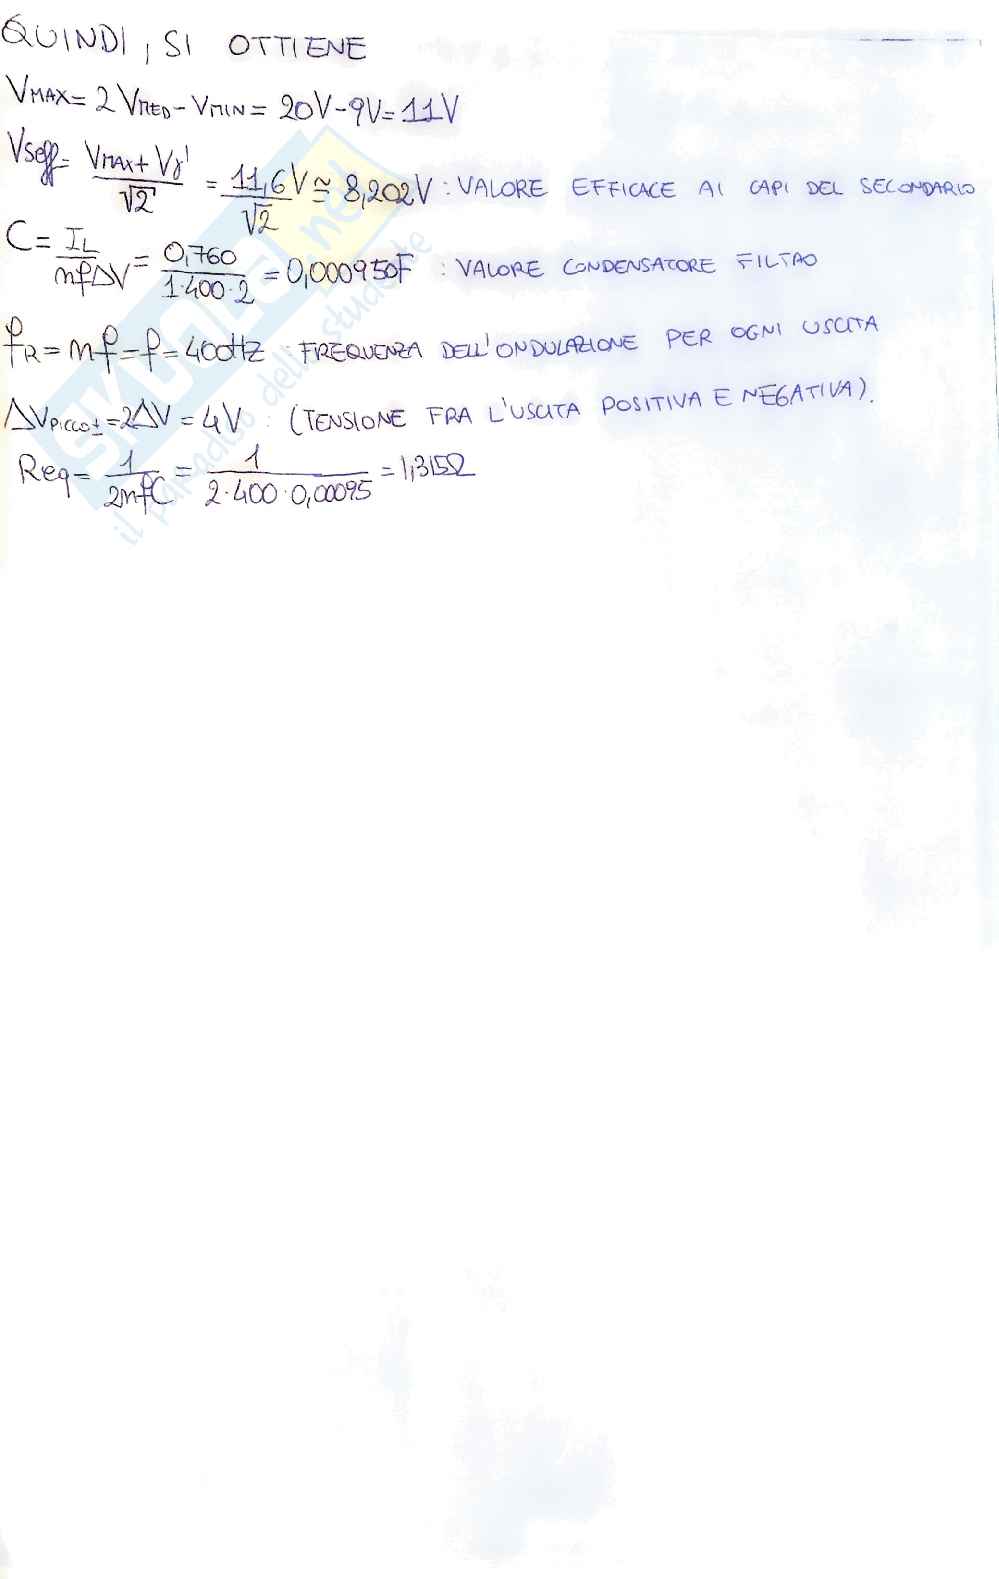 QUINDI, SI OTTIENE
VMAX = 2 VMED - VMIN = 20V - 9V = 11V
Vseff = (VMAX + Vγ)/√2 = 11,6V/√2 ≃ 8,202V : VALORE EFFICACE AI CAPI DEL SECONDARIO
C = IL/(mfΔV) = 0,760/(1·400·2) = 0,000950F : VALORE CONDENSATORE FILTRO
fR = mf = f = 400HZ : FREQUENZA DELL'ONDULAZIONE PER OGNI USCITA
ΔVPICCO± = 2ΔV = 4V : (TENSIONE FRA L'USCITA POSITIVA E NEGATIVA).
Req = 1/(2mfC) = 1/(2·400·0,00095) = 1,315Ω
SKUOLA.net
il paradiso dello studente